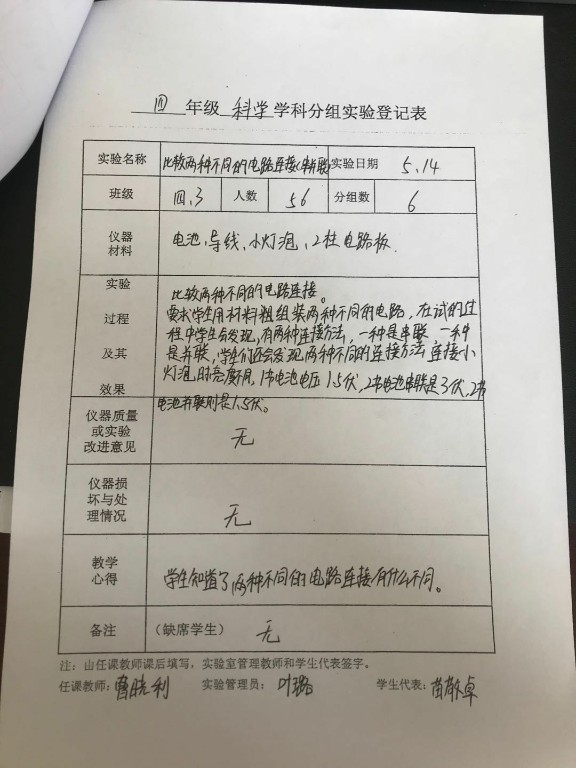 四 年级 科学 学科分组实验登记表
实验名称 比较两种不同的电路连接(串并联) 实验日期 5.14
班级 四.3 人数 56 分组数 6
仪器
材料
电池、导线、小灯泡、2柱电路板.
实验
过程
及其
效果
比较两种不同的电路连接。
要求学生用材料粗组装两种不同的电路,在试的过
程中学生会发现,有两种连接方法,一种是串联,一种
是并联,学生们还会发现,两种不同的连接方法,连接小
灯泡的亮度不同,1节电池电压1.5伏,2节电池串联是3伏,2节
电池并联则是1.5伏。
仪器质量
或实验
改进意见
无
仪器损
坏与处
理情况
无
教学
心得
学生知道了两种不同的电路连接有什么不同。
备注 (缺席学生) 无
注:山任课教师课后填写,实验室管理教师和学生代表签字。
任课教师:曹晓利 实验管理员:叶璐 学生代表:苗